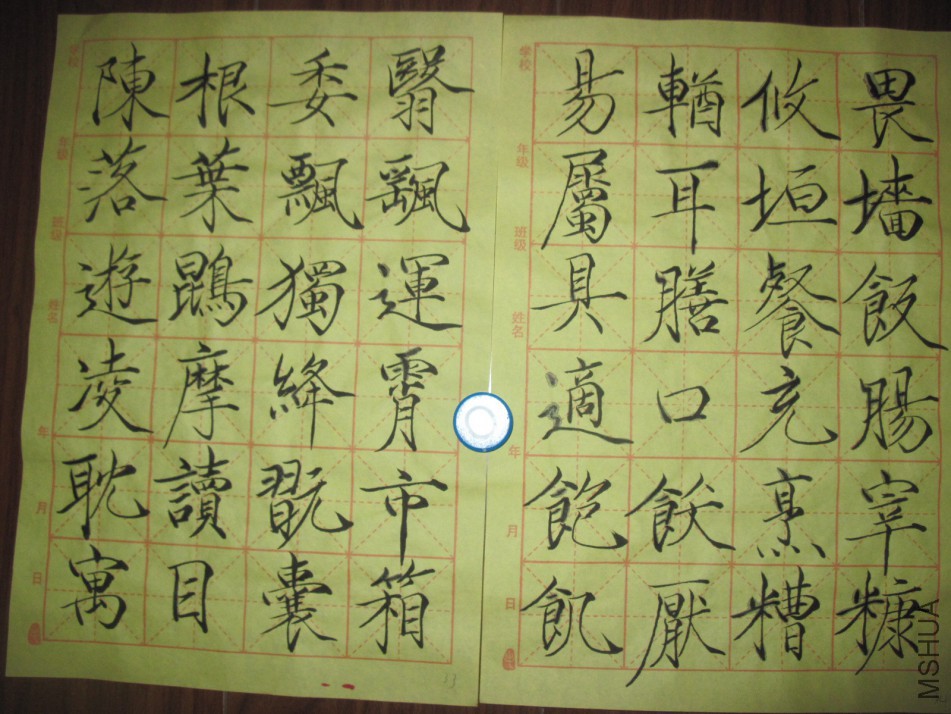 陳根委翳
落葉飄颻
遊鵾獨運
凌摩絳霄
耽讀翫市
寓目囊箱
易輶攸畏
屬耳垣墻
具膳餐飯
適口充腸
飽飫烹宰
飢厭糟糠
学校 年级 班级 姓名 年 月 日
学校 年级 班级 姓名 年 月 日
MSHUA